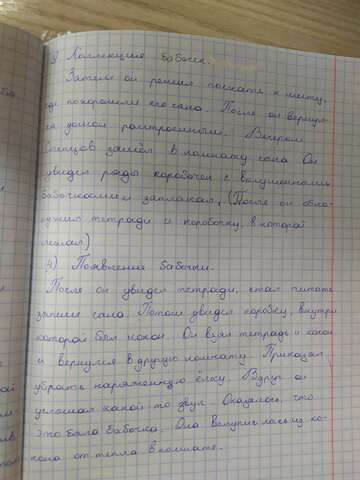 3) Коллекция бабочек.
Затем он решил поехать к месту,
где похоронили его сына. После он вернул-
ся домой расстроенным. Вечером
Слепцов зашёл в комнату сына Он
увидел ряды коробочек с высушенными
бабочками и заплакал, (После он обна-
ружил тетради и коробочку, в которой
)
4) Появления бабочки.
После он увидел тетради, стал читать
записи сына. Потом увидел коробку, внутри
которой был кокон. Он взял тетрадь и кокон
и вернулся в другую комнату. Приказал
убрать наряженную ёлку. Вдруг он
услышал какой-то звук. Оказалось, что
это была бабочка. Она вылупилась из ко-
кона от тепла в комнате.